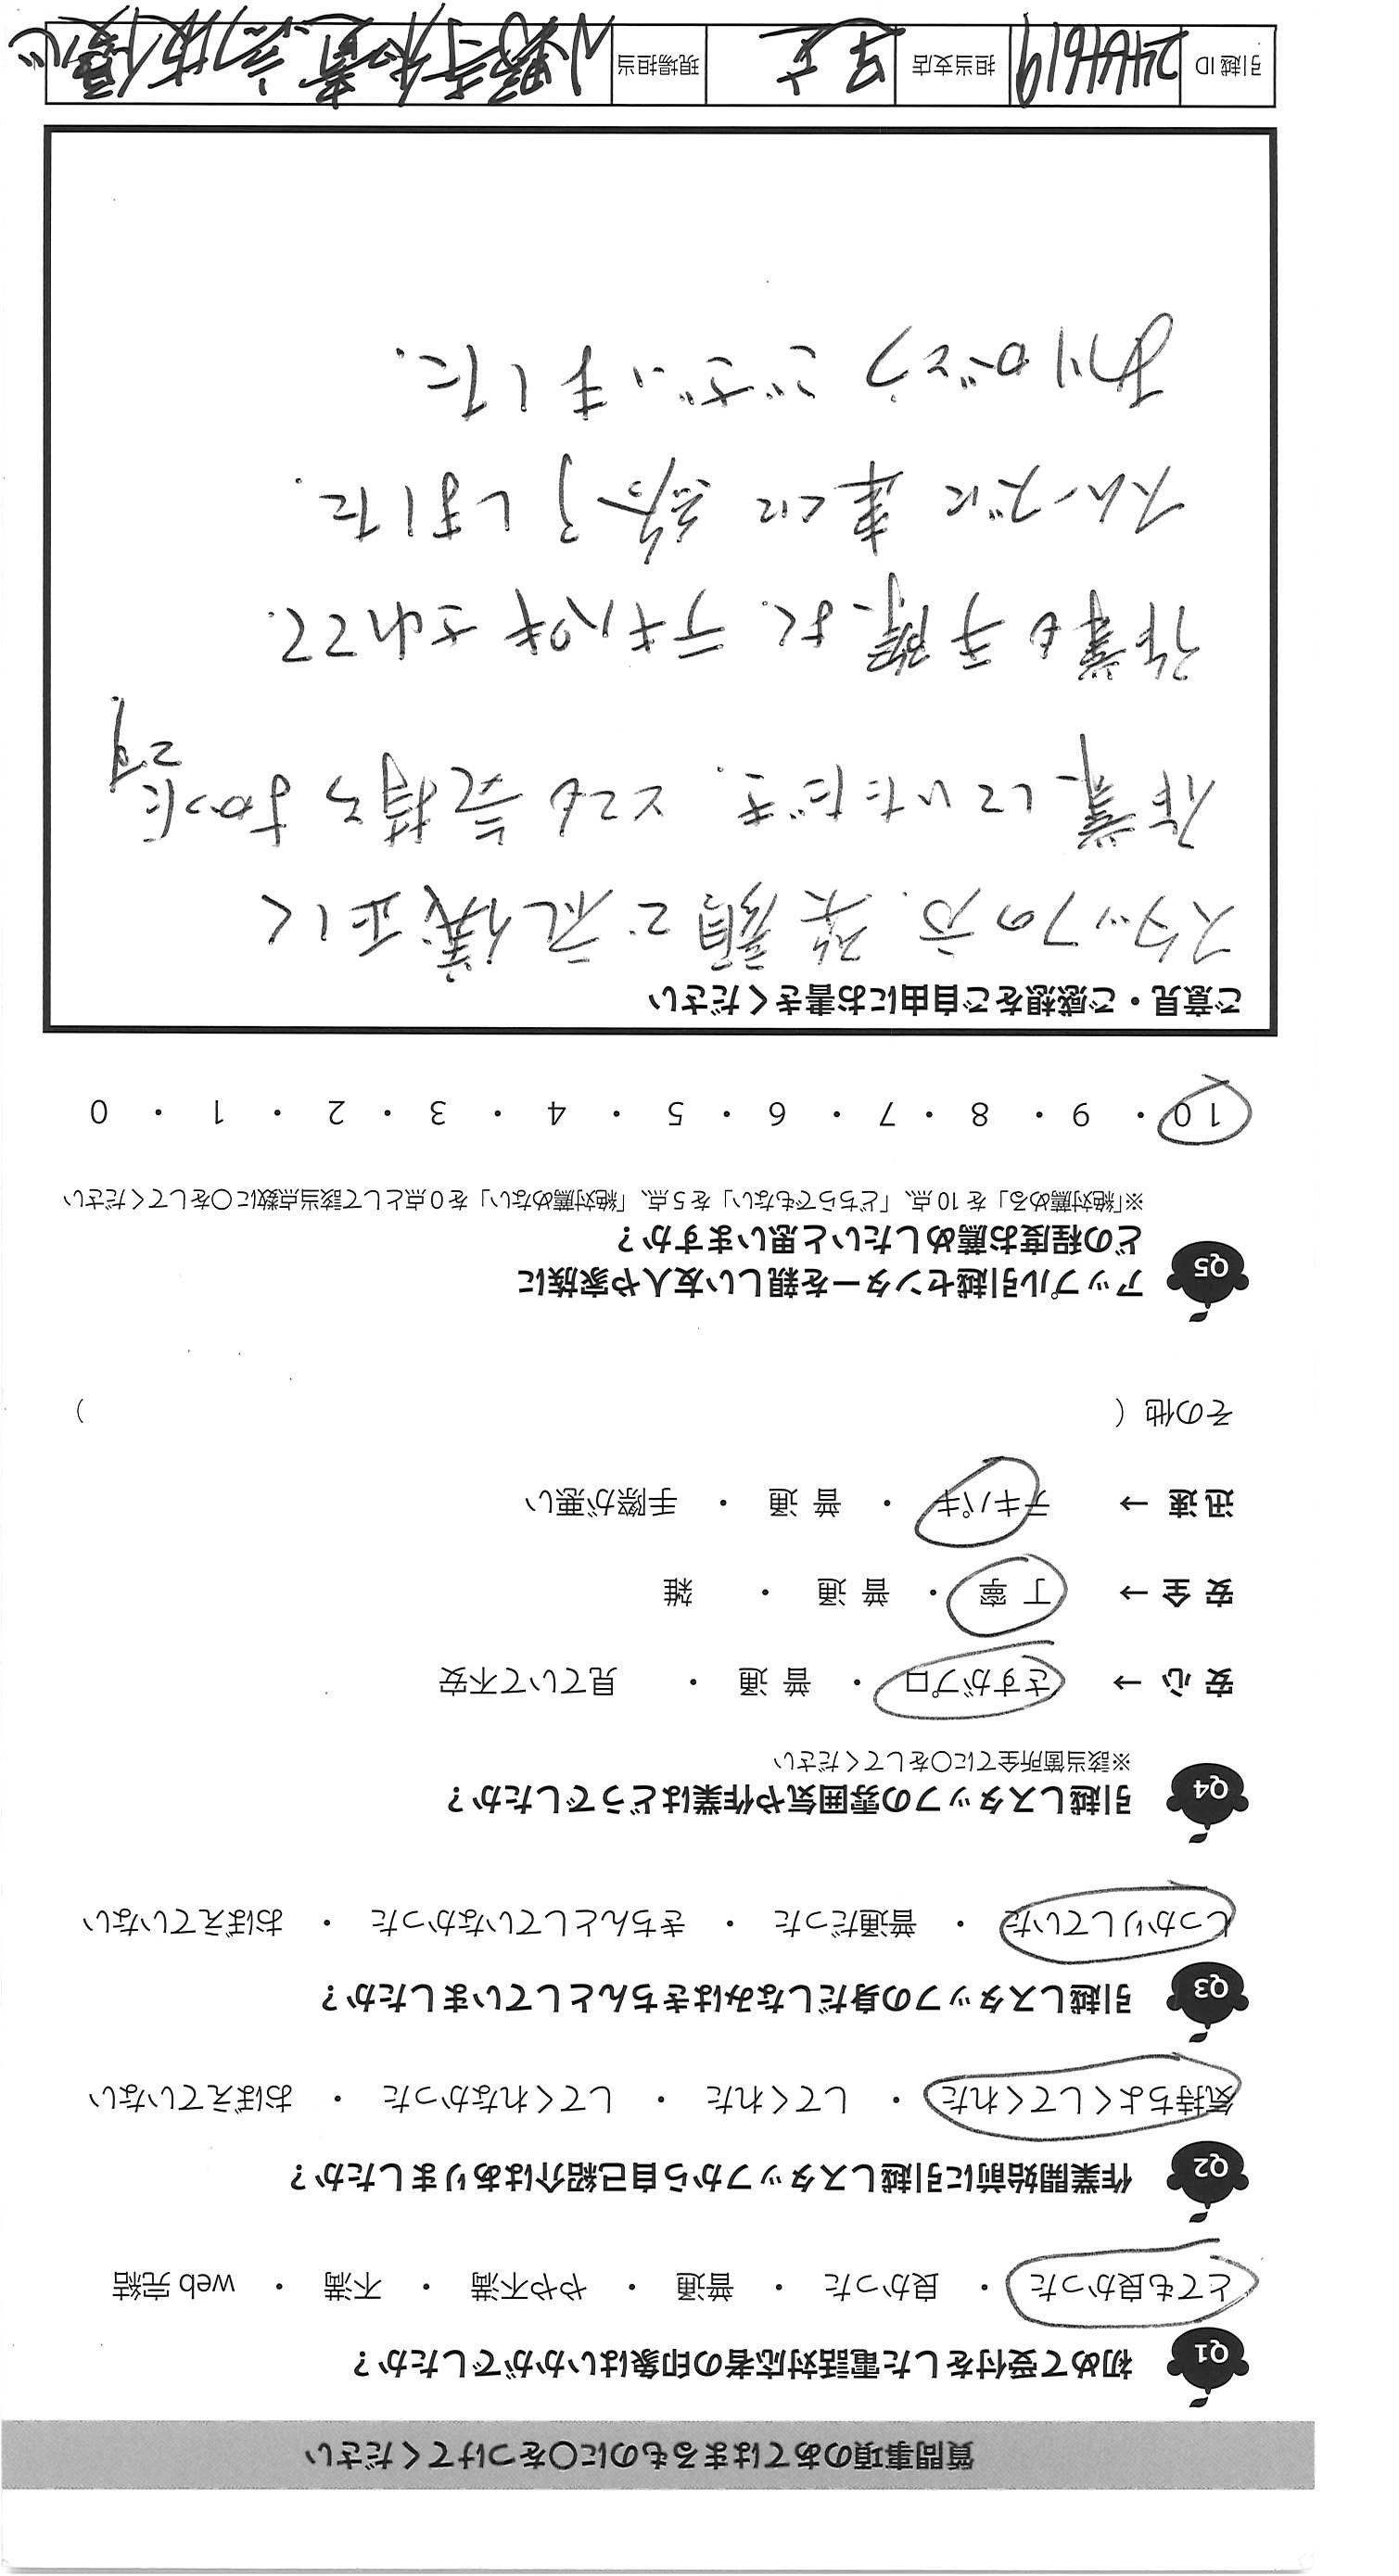 質問事項のあてはまるものに○をつけてください
Q1 初めて受付をした電話対応者の印象はいかがでしたか？
とても良かった ・ 良かった ・ 普通 ・ やや不満 ・ 不満 ・ web 完結
Q2 作業開始前に引越しスタッフから自己紹介はありましたか？
気持ちよくしてくれた ・ してくれた ・ してくれなかった ・ おぼえていない
Q3 引越しスタッフの身だしなみはきちんとしていましたか？
しっかりしていた ・ 普通だった ・ きちんとしていなかった ・ おぼえていない
Q4 引越しスタッフの雰囲気や作業はどうでしたか？
※該当箇所全てに○をしてください
安 心 → さすがプロ ・ 普 通 ・ 見ていて不安
安 全 → 丁 寧 ・ 普 通 ・ 雑
迅 速 → テキパキ ・ 普 通 ・ 手際が悪い
その他（ ）
Q5 アップル引越センターを親しい友人や家族に
どの程度お薦めしたいと思いますか？
※「絶対薦める」を 10 点、「どちらでもない」を 5 点、「絶対薦めない」を 0 点として該当点数に○をしてください
10 ・ 9 ・ 8 ・ 7 ・ 6 ・ 5 ・ 4 ・ 3 ・ 2 ・ 1 ・ 0
ご意見・ご感想をご自由にお書きください
スタッフの方、笑顔で礼儀正しく
作業していただき、とても気持ちよかった
です。
作業も手際よく、テキパキされてて、
スムーズに早くに終了しました。
ありがとうございました。
引越 ID 2464619 担当支店 現場担当